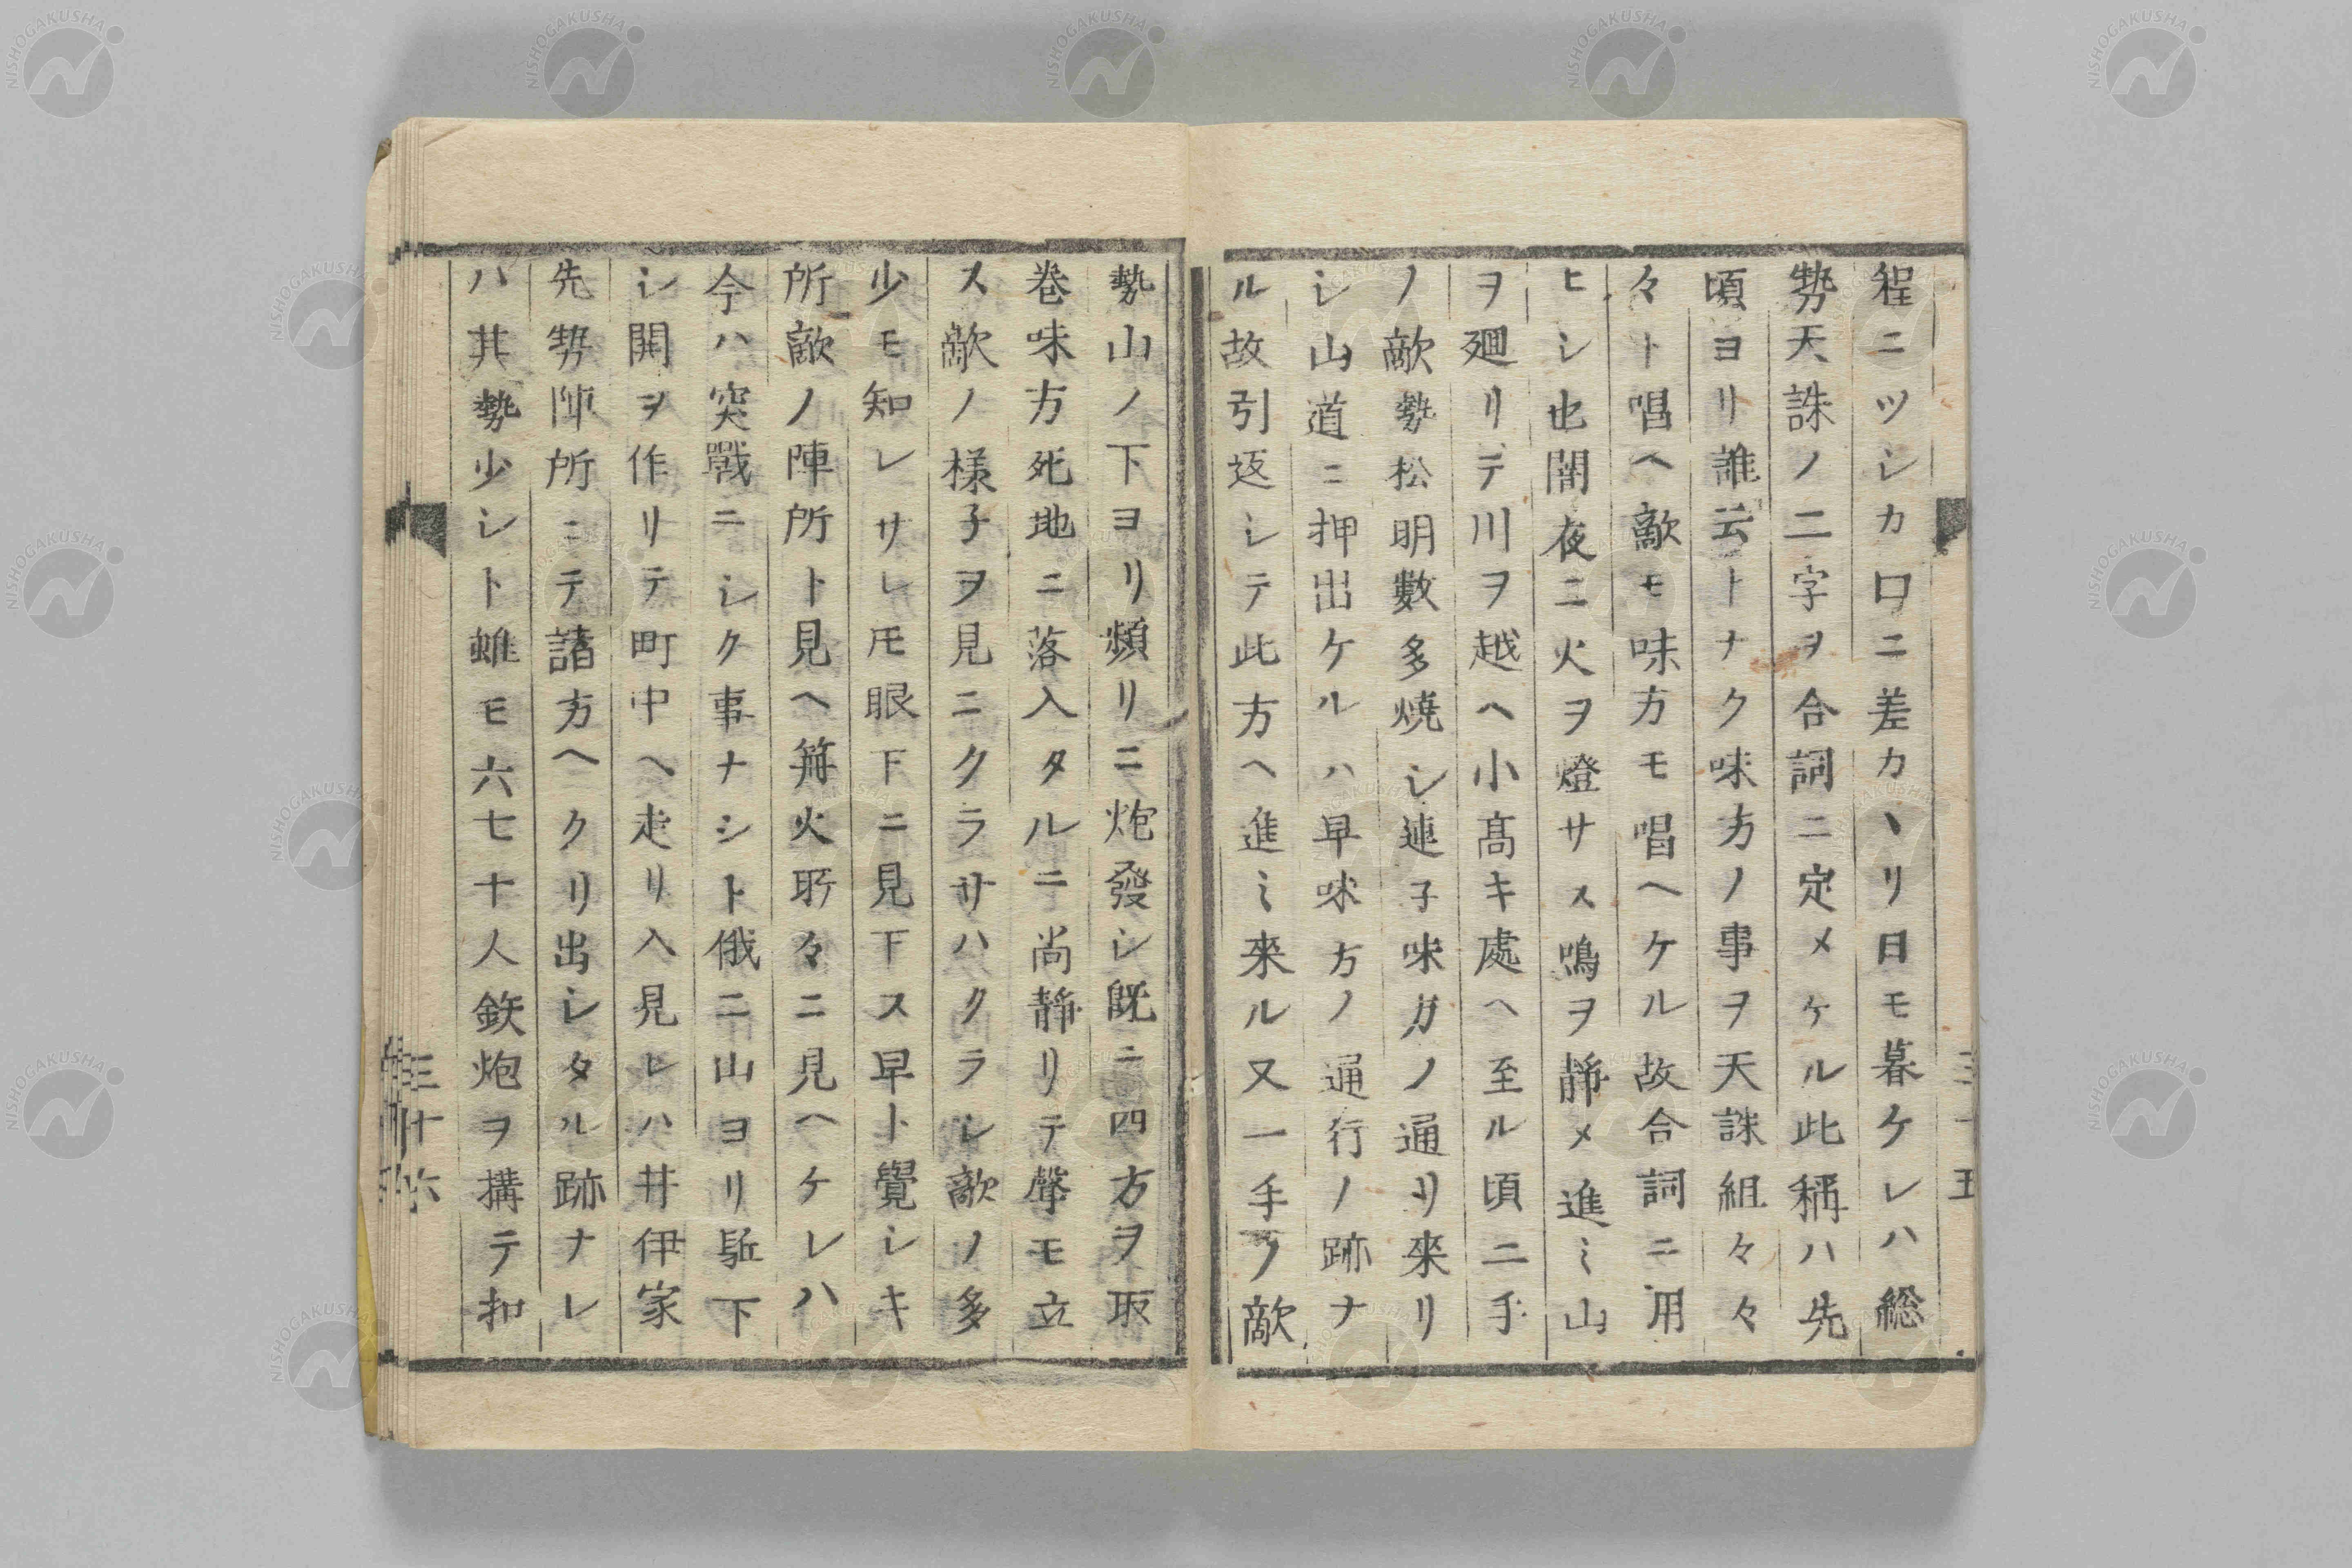 程ニツシカ口ニ差カヽリ日モ暮ケレハ総
勢天誅ノ二字ヲ合詞ニ定メケル此稱ハ先
頃ヨリ誰云トナク味方ノ事ヲ天誅組々々
々ト唱ヘ敵モ味方モ唱ヘケル故合詞ニ用
ヒシ也闇夜ニ火ヲ燈サス鳴ヲ静メ進ミ山
ヲ廻リテ川ヲ越ヘ小髙キ處ヘ至ル頃二手
ノ敵勢松明數多燒シ連子味方ノ通リ來リ
シ山道ニ押出ケルハ早味方ノ通行ノ跡ナ
ル故引返シテ此方ヘ進ミ來ル又一手ノ敵
三十五
勢山ノ下ヨリ頻リニ炮發シ既ニ四方ヲ取
巻味方死地ニ落入タルニ尚静リテ聲モ立
ス敵ノ様子ヲ見ニクラサハクラレ敵ノ多
少モ知レサレ𪜈眼下ニ見下ス早ト覺シキ
所敵ノ陣所ト見ヘ篝火所々ニ見ヘケレハ
今ハ突戰ニシク事ナシト俄ニ山ヨリ駈下
シ開ヲ作リテ町中ヘ走リ入見レハ井伊家
先勢陣所ニテ諸方ヘクリ出シタル跡ナレ
ハ其勢少シト雖モ六七十人鉄炮ヲ搆テ扣
三十六
NISHOGAKUSHA